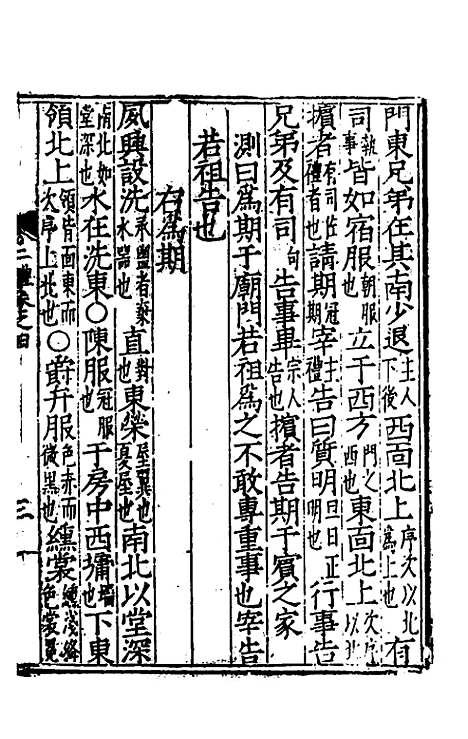 門東兄弟在其南少退主人下後西面北上序次以北為上也有
司執事皆如宿服朝服立于西方門之西也東面北上次序以北
擯者有司佐禮者也請期冠期宰主禮告曰質明旦日正明也行事告
兄弟及有司向告事畢宗人告也擯者告期于賓之家
測曰為期于廟門若祖為之不敢專重事也宰告
若祖告也
右為期
夙興設洗承盥者棄水器也直對也東榮屋翼也夏屋也南北以堂深
南北如堂深也水在洗東○陳服冠服也于房中西墉牆也下東
領北上領皆面東而次序上北也○爵弁服色赤而微黑也纁裳纁淺絳色裳
二禮卷之四
三